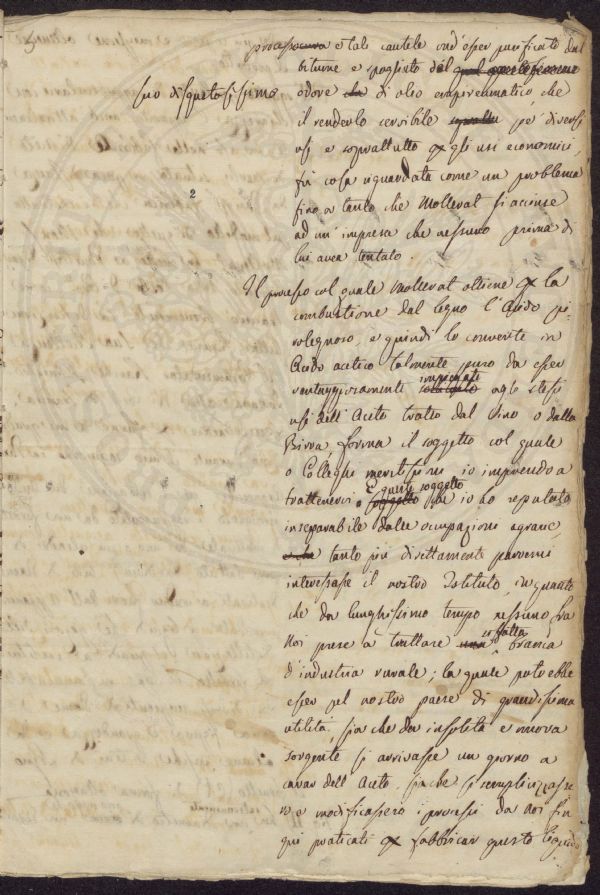 processo e tali cautele ond'esser purificato dal
bitume e spogliato dal
suo disgustosissimo
odore di olio empireumatico, che
il renderlo servibile per diversi
usi e soprattutto per gli usi economici,
fu cosa riguardata come un problema
fino a tanto che Mollerat si accinse
ad un'impresa che nessuno prima di
lui avea tentato.
2
Il processo col quale Mollerat ottiene per la
combustione dal legno l'Acido pi-
rolegnoso, e quindi lo converte in
Acido acetico talmente puro da esser
vantaggiosamente impiegato agli stessi
usi dell'Aceto tratto dal Vino o dalla
Birra, forma il soggetto col quale
o Colleghi meritissimi io imprendo a
trattenervi. E questo soggetto
che io ho reputato
inseparabile dalle occupazioni agrarie,
tanto più direttamente parvemi
interessare il nostro Istituto, in quanto
che da lunghissimo tempo nessuno fra
Noi prese a trattare cosifatta branca
d'industria rurale; la quale potrebbe
esser pel nostro paese di grandissima
utilità, sia che da insolita e nuova
sorgente si arrivasse un giorno a
cavar dell'Aceto, sia che si semplicizzasse-
ro e modificassero i processi da noi fin
qui praticati per fabbricar questo liquido